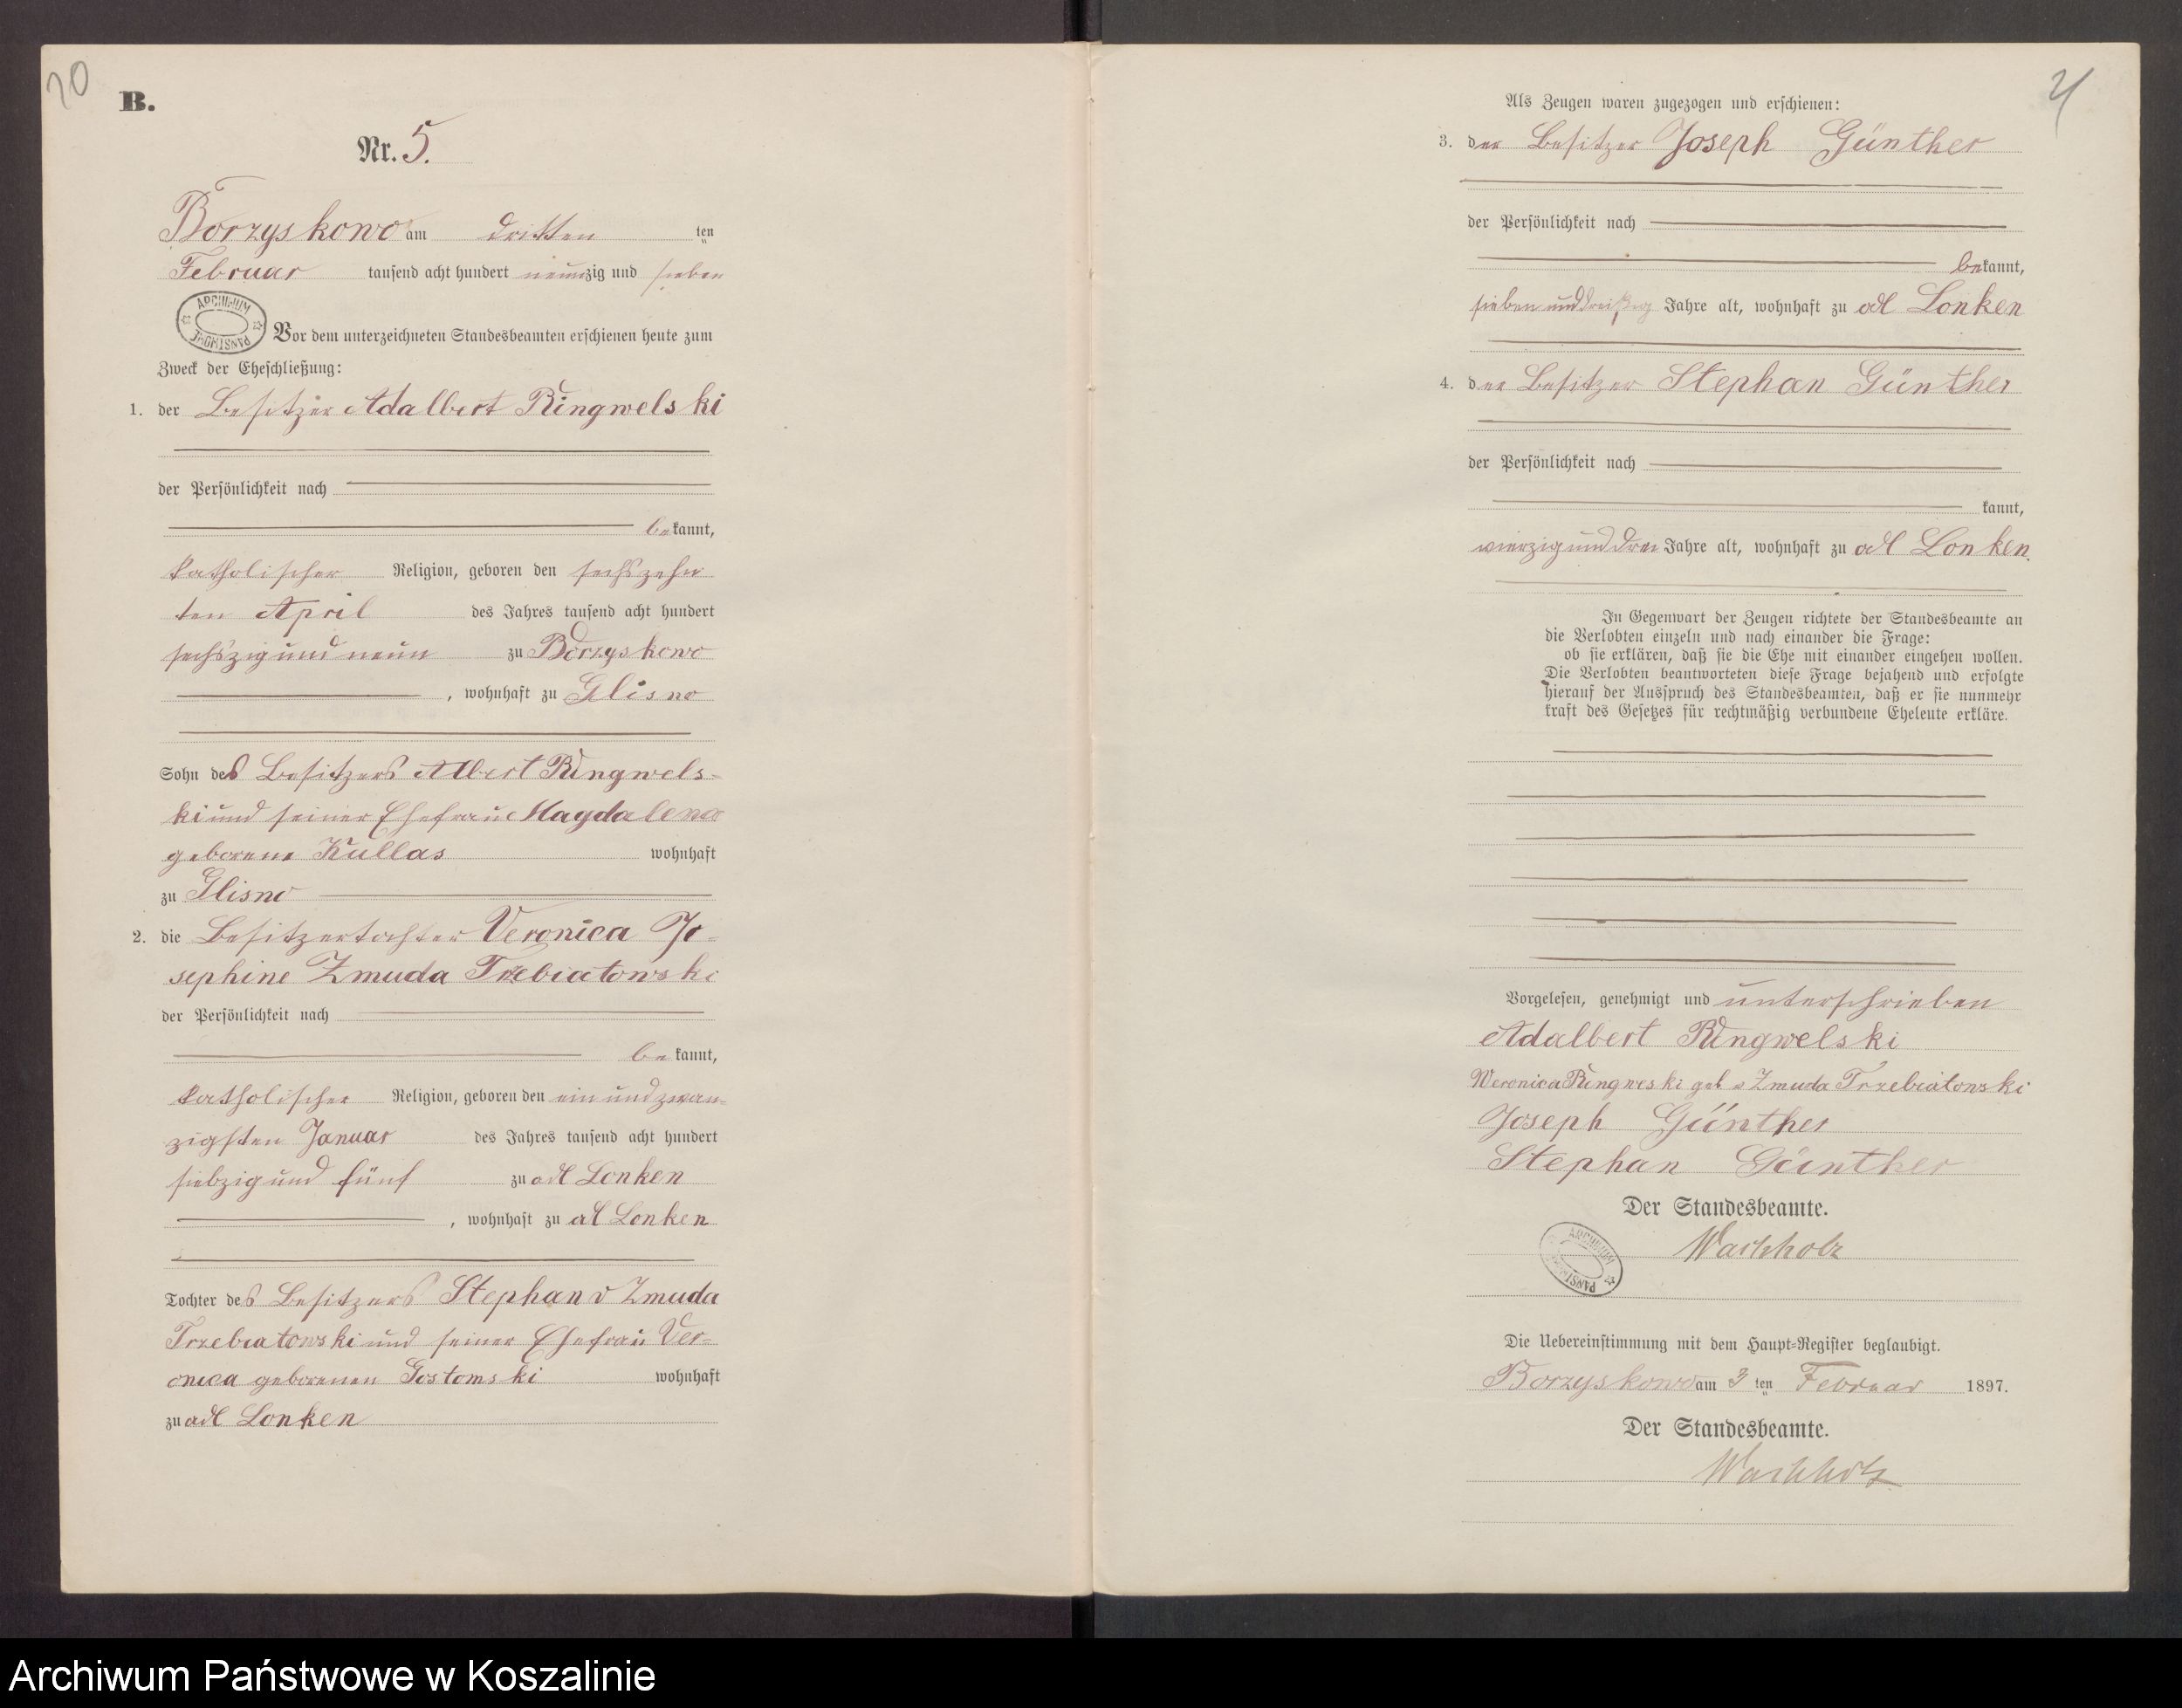 20
B.
Nr. 5.
Borzyskowo am dritten ten
Februar tausend acht hundert neunzig und sieben
ARCHIWUM PAŃSTWOWE
Vor dem unterzeichneten Standesbeamten erschienen heute zum
Zweck der Eheschließung:
1. der Besitzer Adalbert Ringwelski
der Persönlichkeit nach
bekannt,
katholischer Religion, geboren den sechszehn
ten April des Jahres tausend acht hundert
sechszig und neun zu Borzyskowo
, wohnhaft zu Glisno
Sohn des Besitzers Albert Ringwels-
ki und seiner Ehefrau Magdalena
geborene Kullas wohnhaft
zu Glisno
2. die Besitzertochter Veronica Jo-
sephine Zmuda Trzebiatowski
der Persönlichkeit nach
bekannt,
katholischer Religion, geboren den ein und zwan-
zigsten Januar des Jahres tausend acht hundert
siebzig und fünf zu adl Lonken
, wohnhaft zu adl Lonken
Tochter des Besitzers Stephan v Zmuda
Trzebiatowski und seiner Ehefrau Ver-
onica geborenen Gostomski wohnhaft
zu adl Lonken
21
Als Zeugen waren zugezogen und erschienen:
3. der Besitzer Joseph Günther
der Persönlichkeit nach
bekannt,
sieben und dreißig Jahre alt, wohnhaft zu adl Lonken
4. der Besitzer Stephan Günther
der Persönlichkeit nach
kannt,
vierzig und drei Jahre alt, wohnhaft zu adl Lonken.
In Gegenwart der Zeugen richtete der Standesbeamte an
die Verlobten einzeln und nach einander die Frage:
ob sie erklären, daß sie die Ehe mit einander eingehen wollen.
Die Verlobten beantworteten diese Frage bejahend und erfolgte
hierauf der Ausspruch des Standesbeamten, daß er sie nunmehr
kraft des Gesetzes für rechtmäßig verbundene Eheleute erkläre.
Vorgelesen, genehmigt und unterschrieben
Adalbert Ringwelski
Weronica Ringweski geb v Zmuda Trzebiatowski
Joseph Günther
Stephan Günther
Der Standesbeamte.
Wachholz
ARCHIWUM PAŃSTWOWE
Die Uebereinstimmung mit dem Haupt-Register beglaubigt.
Borzyskowo am 3 ten Februar 1897.
Der Standesbeamte.
Wachholz
Archiwum Państwowe w Koszalinie